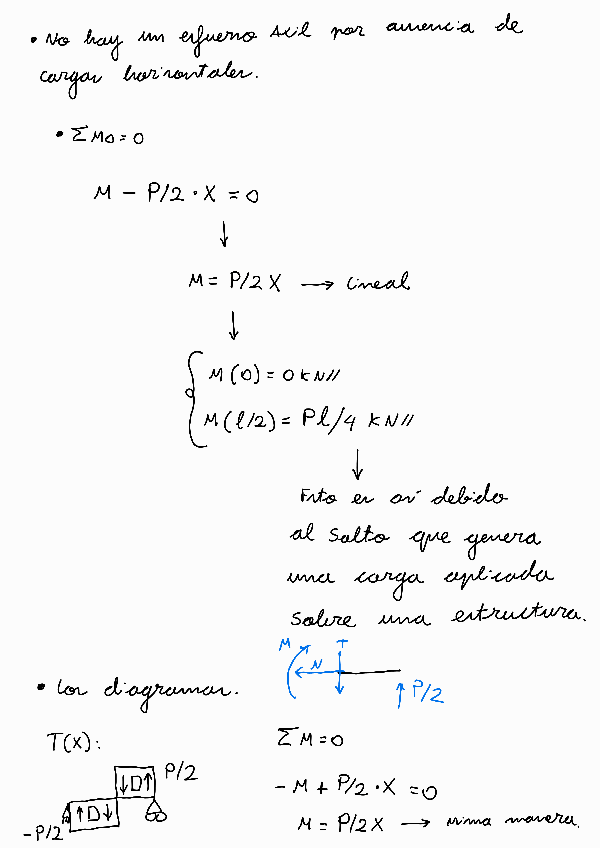 • No hay un esfuerzo axil por ausencia de
cargas horizontales.
• ΣMo = 0
M - P/2 · X = 0
↓
M = P/2 X → Lineal
↓
M(0) = 0 kN//
M(l/2) = Pl/4 kN//
↓
Esto es así debido
al salto que genera
una carga aplicada
sobre una estructura.
M N T
P/2
• Los diagramas.
T(x):
P/2
↓D↑
↑D↓
-P/2
ΣM = 0
-M + P/2 · X = 0
M = P/2 X → misma manera.